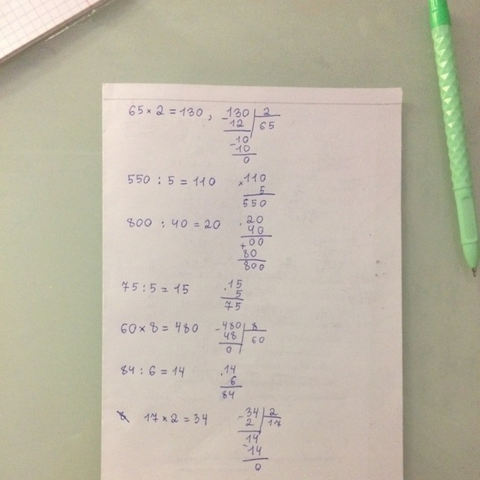 65 × 2 = 130 , 130 | 2
- 12 65
- 10
10
0
550 : 5 = 110 × 110
5
550
800 : 40 = 20 · 20
40
+ 00
80
800
75 : 5 = 15 · 15
5
75
60 × 8 = 480 - 480 | 8
48 60
0
84 : 6 = 14 · 14
6
84
17 × 2 = 34 - 34 | 2
2 17
14
- 14
0